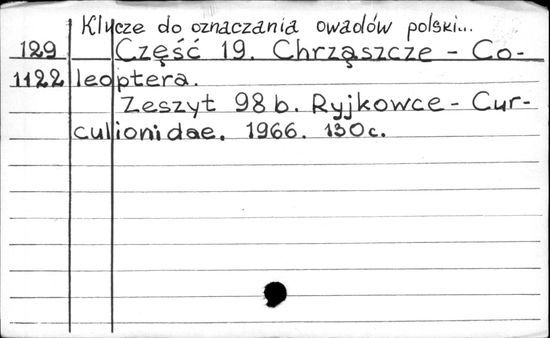 Klucze do oznaczania owadów polski...
129 Część 19. Chrząszcze - Co-
1122 leoptera.
Zeszyt 98b. Ryjkowce - Cur-
culionidae. 1966. 130с.